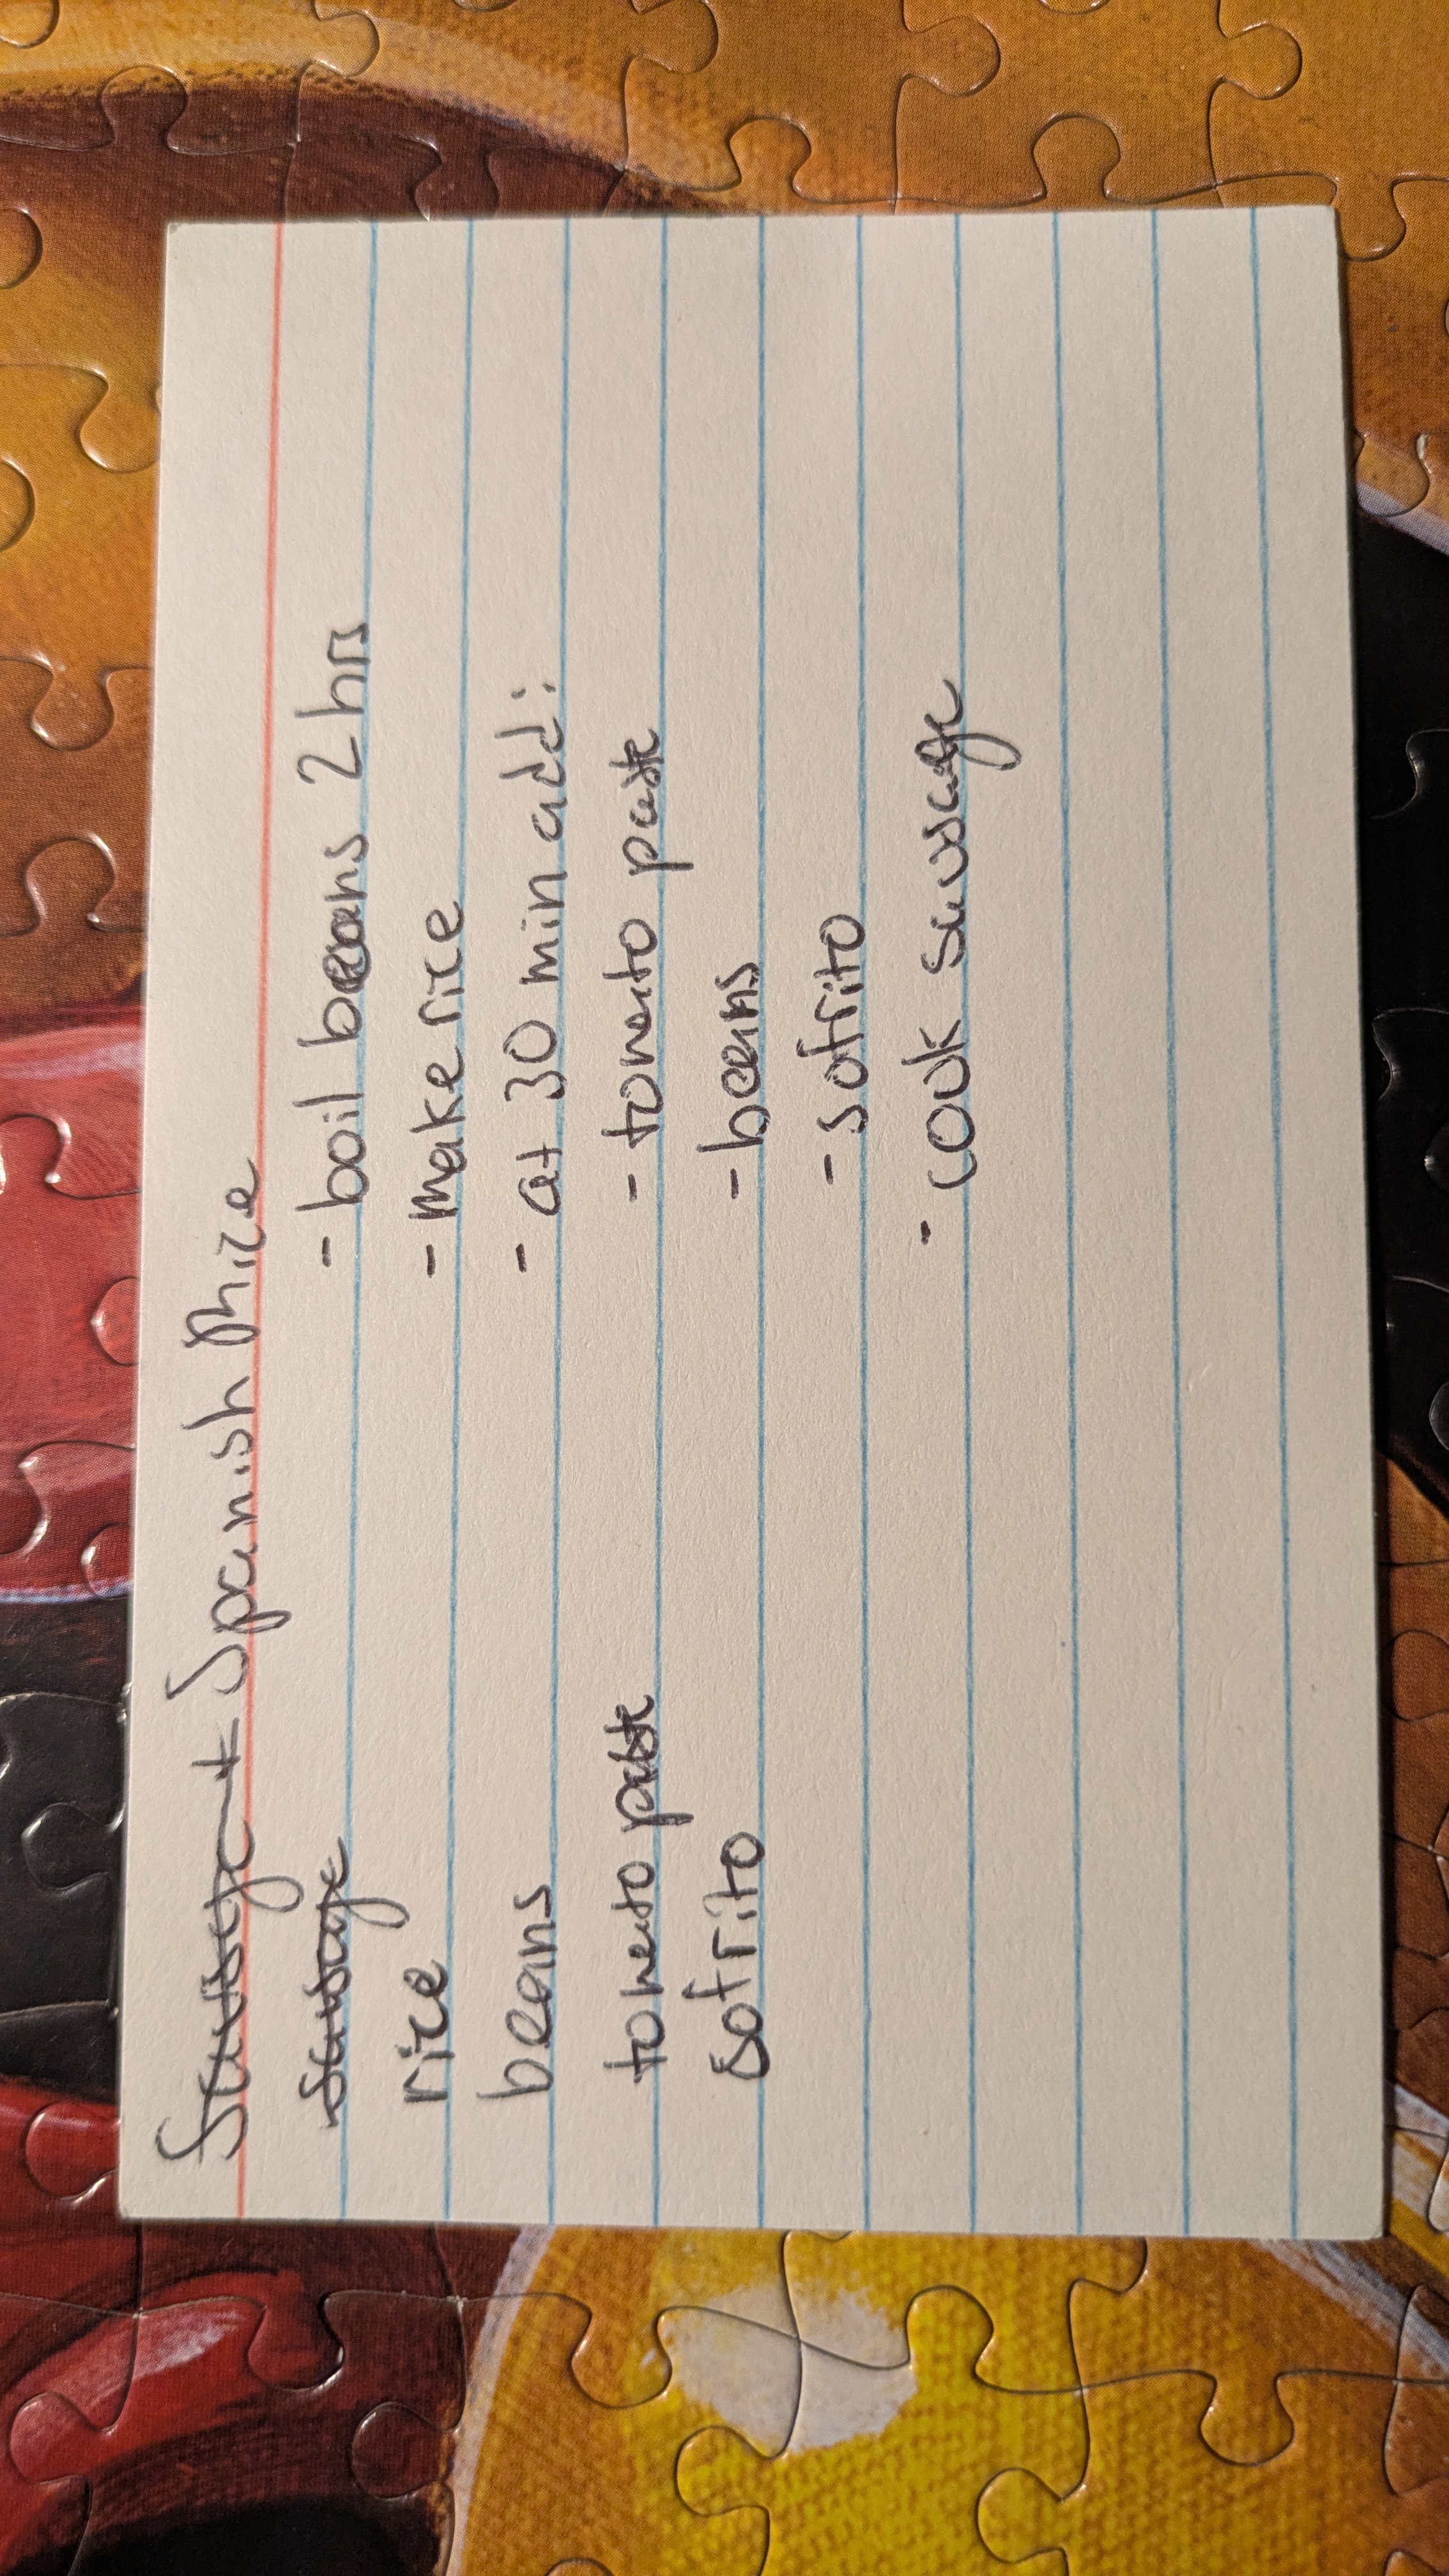 Sausage + Spanish Rice
sausage
rice
beans
tomato paste
sofrito
- boil beans 2 hrs
- make rice
- at 30 min add:
- tomato paste
- beans
- sofrito
- cook sausage